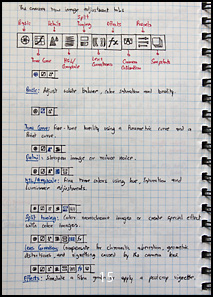 The camera raw image adjustment tabs
Basic Details Split Toning Effects Presets
Tone Curve HSL/Grayscale Lens Corrections Camera Calibration Snapshots
Basic: Adjust white balance, color saturation and tonality.
Tone Curve: Fine-tune tonality using a Parametric curve and a Point curve.
Detail: Sharpen image or reduce noise.
HSL/Grayscale: Fine tune colors using hue, saturation and luminance adjustments.
Split Toning: Color monochrome images or create special effects
with color images.
Lens Corrections: Compensate for chromatic aberration, geometric
distortions and vignetting caused by the camera lens.
15
Effects: Simulate a film grain or apply a post-crop vignette.